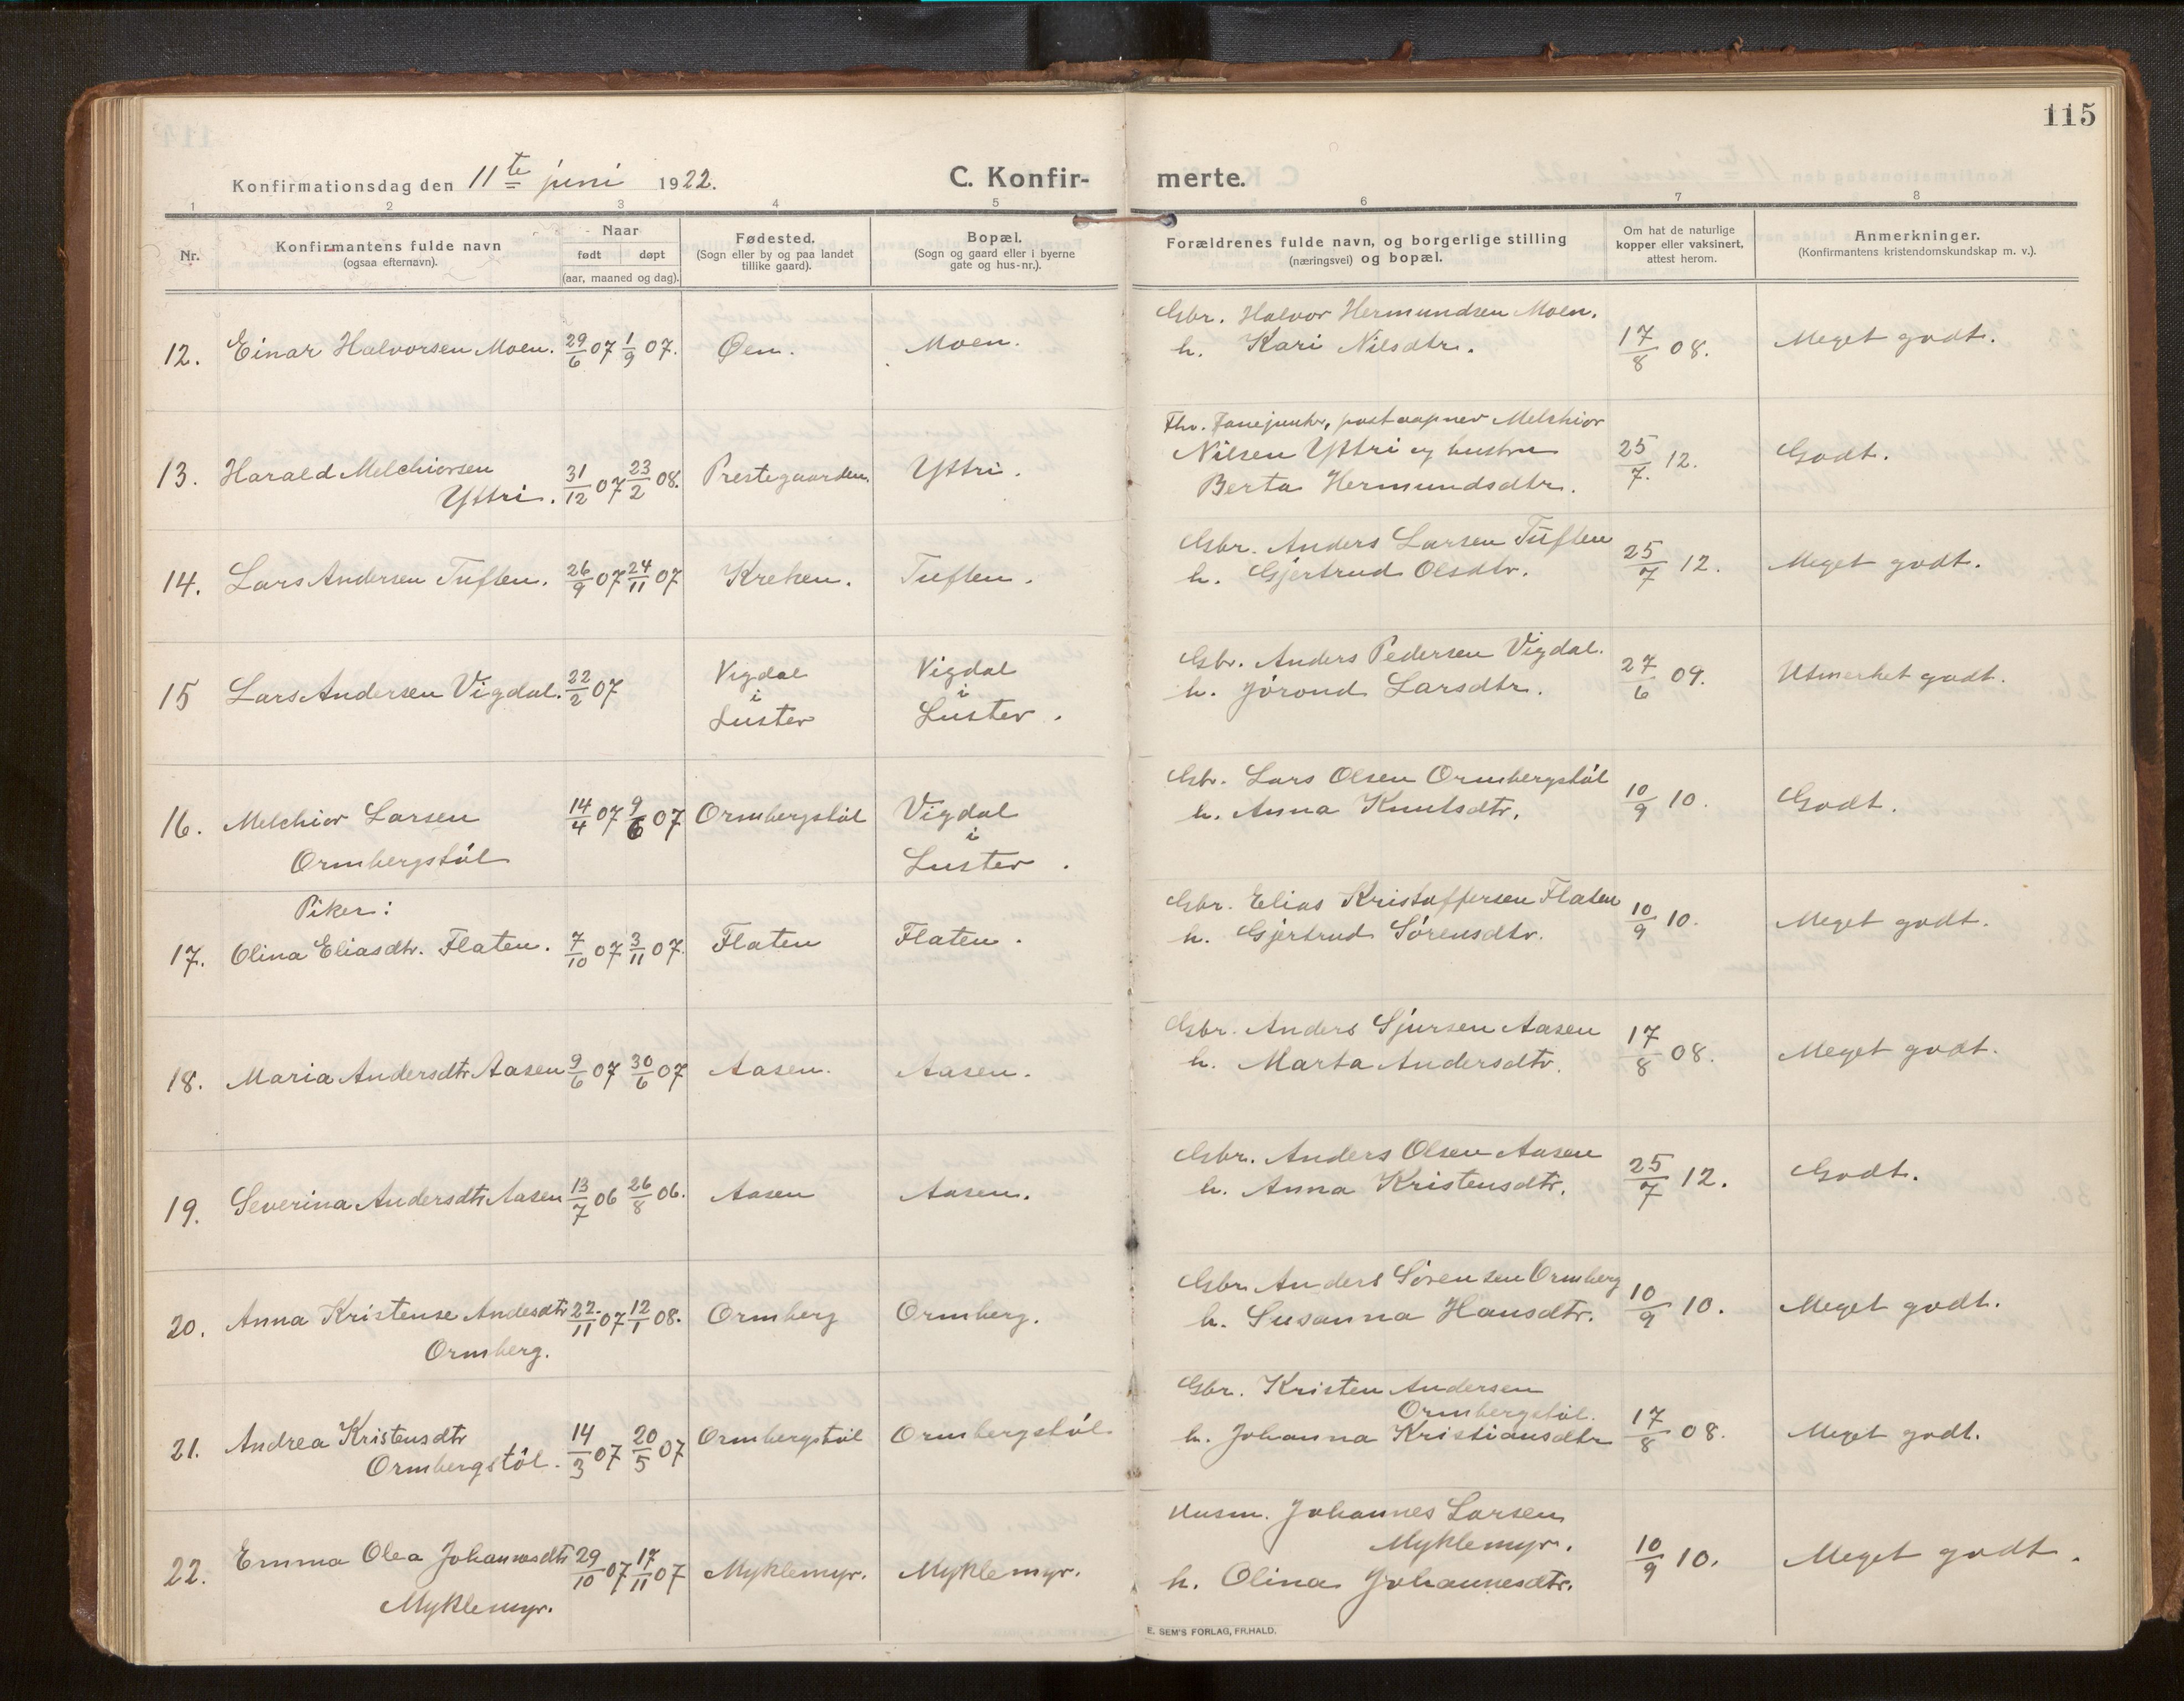 115
Konfirmationsdag den 11te juni 1922.
C. Konfirmerte.
1 2 3 4 5 6 7 8
Nr.
Konfirmantens fulde navn
(ogsaa efternavn).
Naar
født døpt
(aar, maaned og dag).
Fødested.
(Sogn eller by og paa landet
tillike gaard).
Bopæl.
(Sogn og gaard eller i byerne
gate og hus-nr.).
Forældrenes fulde navn, og borgerlige stilling
(næringsvei) og bopæl.
Om hat de naturlige
kopper eller vaksinert,
attest herom.
Anmerkninger.
(Konfirmantens kristendomskundskap m. v.).
Gbr. Halvor Hermundsen Moen.
12. Einar Halvorsen Moen. 29/6 07 1/9 07. Øen. Moen. h. Kari Nilsdtr. 17/8 08. Meget godt.
Fhv. Fanejunker, postaapner Melchior
13. Harald Melchiorsen 31/12 07 23/2 08. Prestegaarden. Yttri. Nilsen Yttri og hustru 25/7. 12. Godt.
Yttri. Berta Hermundsdtr.
Gbr. Anders Larsen Tuften
14. Lars Andersen Tuften. 26/9 07 24/11 07 Kreken. Tuften. h. Gjertrud Olsdtr. 25/7 12. Meget godt.
Gbr. Anders Pedersen Vigdal.
15 Lars Andersen Vigdal. 22/2 07 Vigdal i Luster Vigdal i Luster. h. Jórond Larsdtr. 27/6 09. Utmerket godt.
Gbr. Lars Olsen Ormbergstól
16. Melchior Larsen 14/4 07 9/6 07 Ormbergstól Vigdal i Luster. h. Anna Knutsdtr. 10/9 10. Godt.
Ormbergstól
Piker:
Gbr. Elias Kristoffersen Flaten
17. Olina Eliasdtr. Flaten. 7/10 07 3/11 07. Flaten Flaten. h. Gjertrud Sórensdtr. 10/9 10. Meget godt.
Gbr. Anders Sjursen Aasen
18. Maria Andersdtr Aasen 9/6 07 30/6 07 Aasen. Aasen. h. Marta Andersdtr. 17/8 08. Meget godt.
Gbr. Anders Olsen Aasen
19. Severina Andersdtr Aasen 13/7 06 26/8 06. Aasen Aasen. h. Anna Kristensdtr. 25/7 12. Godt.
Gbr Anders Sórensen Ormberg
20. Anna Kristense Andesdtr 22/11 07 12/1 08. Ormberg Ormberg. h. Susanna Hansdtr. 10/9 10. Meget godt.
Ormberg.
Gbr. Kristen Andersen
Ormbergstól.
21. Andrea Kristensdtr 14/3 07 20/5 07 Ormbergstól Ormbergstól. h. Johanna Kristiansdtr 17/8 08. Meget godt.
Ormbergstól.
Husm. Johannes Larsen
Myklemyr.
22. Emma Olea Johannesdtr 29/10 07 17/11 07 Myklemyr. Myklemyr. h. Olina Johannesdtr. 10/9 10. Meget godt.
Myklemyr.
E. SEM'S FORLAG, FR.HALD.